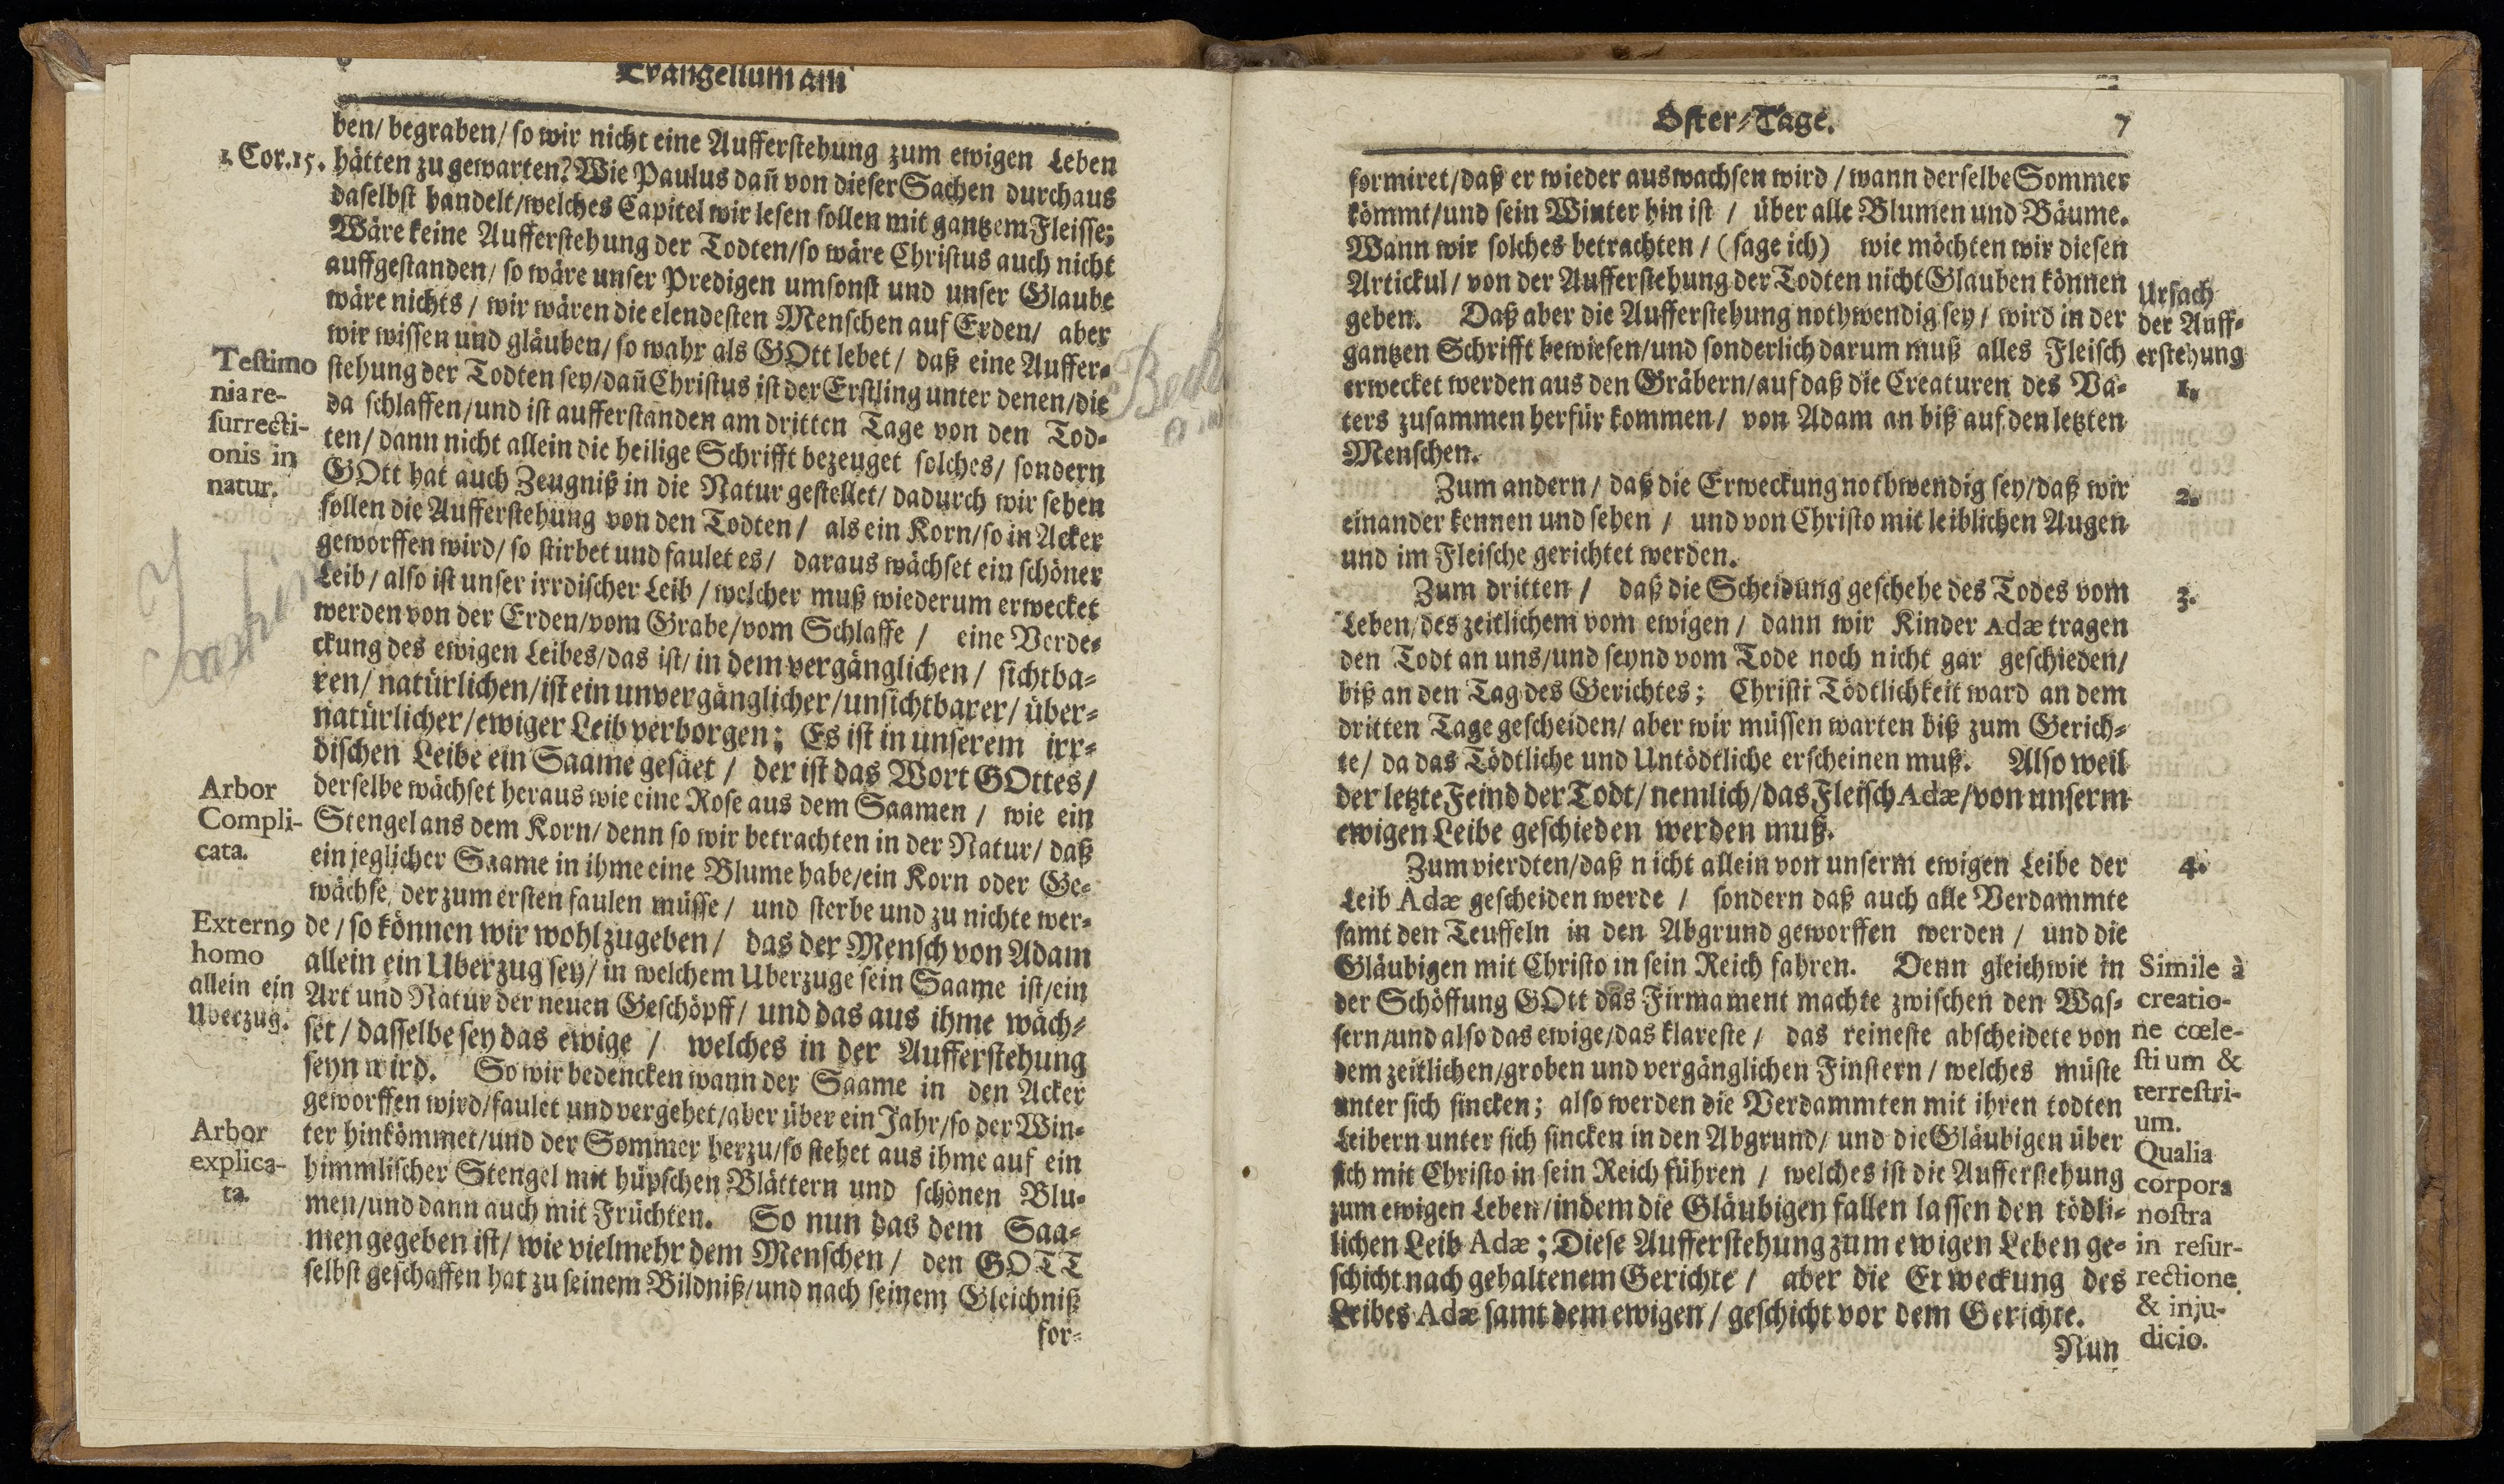 Evangelium am
ben/ begraben/ so wir nicht eine Aufferstehung zum ewigen Leben
1. Cor. 15.
hätten zu gewarten? Wie Paulus dañ von dieser Sachen durchaus
daselbst handelt/welches Capitel wir lesen sollen mit gantzem Fleisse;
Wäre keine Aufferstehung der Todten/so wäre Christus auch nicht
auffgestanden/ so wäre unser Predigen umsonst und unser Glaube
wäre nichts / wir wären die elendesten Menschen auf Erden/ aber
wir wissen und gläuben/ so wahr als GOtt lebet/ daß eine Auffer-
stehung der Todten sey/dañ Christus ist der Erstling unter denen/die
da schlaffen/und ist aufferstanden am dritten Tage von den Tod-
ten/ dann nicht allein die heilige Schrifft bezeuget solches/ sondern
GOtt hat auch Zeugniß in die Natur gestellet/ dadurch wir sehen
sollen die Aufferstehung von den Todten/ als ein Korn/so in Acker
geworffen wird/ so stirbet und faulet es/ daraus wächset ein schöner
Leib/ also ist unser irrdischer Leib / welcher muß wiederum erwecket
werden von der Erden/vom Grabe/vom Schlaffe / eine Verde-
ckung des ewigen Leibes/das ist/ in dem vergänglichen/ sichtba-
ren/ natürlichen/ist ein unvergänglicher/unsichtbarer/ über-
natürlicher/ewiger Leib verborgen; Es ist in unserem irr-
dischen Leibe ein Saame gesäet / der ist das Wort GOttes/
derselbe wächset heraus wie eine Rose aus dem Saamen / wie ein
Stengel ans dem Korn/ denn so wir betrachten in der Natur/ daß
ein jeglicher Saame in ihme eine Blume habe/ein Korn oder Ge-
wächse/ der zum ersten faulen müsse/ und sterbe und zu nichte wer-
de/ so können wir wohl zugeben/ das der Mensch von Adam
allein ein Uberzug sey/ in welchem Uberzuge sein Saame ist/ein
Art und Natur der neuen Geschöpff/ und das aus ihme wäch-
set/ dasselbe sey das ewige / welches in der Aufferstehung
seyn wird. So wir bedencken wann der Saame in den Acker
geworffen wird/faulet und vergehet/aber über ein Jahr/so der Win-
ter hinkömmet/und der Sommer herzu/so stehet aus ihme auf ein
himmlischer Stengel mit hüpschen Blättern und schönen Blu-
men/und dann auch mit Früchten. So nun das dem Saa-
men gegeben ist/ wie vielmehr dem Menschen/ den GOTT
selbst geschaffen hat zu seinem Bildniß/und nach seinem Gleichniß
for-
Testimo
nia re-
surrecti-
onis in
natur.
Arbor
Compli-
cata.
Extern9
homo
allein ein
Uberzug.
Arbor
explica-
ta.
Oster-Tage.
7
formiret/daß er wieder auswachsen wird / wann derselbe Sommer
kömmt/und sein Winter hin ist / über alle Blumen und Bäume.
Wann wir solches betrachten / (sage ich) wie möchten wir diesen
Artickul / von der Aufferstehung der Todten nicht Glauben können
geben. Daß aber die Aufferstehung nothwendig sey / wird in der
gantzen Schrifft bewiesen/und sonderlich darum muß alles Fleisch
erwecket werden aus den Gräbern/auf daß die Creaturen des Va-
ters zusammen herfür kommen / von Adam an biß auf den letzten
Menschen.
Zum andern / daß die Erweckung nothwendig sey/daß wir
einander kennen und sehen / und von Christo mit leiblichen Augen
und im Fleische gerichtet werden.
Zum dritten / daß die Scheidung geschehe des Todes vom
Leben/des zeitlichem vom ewigen / dann wir Kinder Adæ tragen
den Todt an uns/und seynd vom Tode noch nicht gar geschieden/
biß an den Tag des Gerichtes; Christi Tödtlichkeit ward an dem
dritten Tage gescheiden/ aber wir müssen warten biß zum Gerich-
te/ da das Tödtliche und Untödtliche erscheinen muß. Also weil
der letzte Feind der Todt/ nemlich/das Fleisch Adæ/von unserm
ewigen Leibe geschieden werden muß.
Zum vierdten/daß nicht allein von unserm ewigen Leibe der
Leib Adæ gescheiden werde / sondern daß auch alle Verdammte
samt den Teuffeln in den Abgrund geworffen werden / und die
Gläubigen mit Christo in sein Reich fahren. Denn gleichwie in
der Schöffung GOtt das Firmament machte zwischen den Was-
sern/und also das ewige/das klareste / das reineste abscheidete von
dem zeitlichen/groben und vergänglichen Finstern / welches müste
unter sich sincken; also werden die Verdammten mit ihren todten
Leibern unter sich sincken in den Abgrund/ und die Gläubigen über
sich mit Christo in sein Reich führen / welches ist die Aufferstehung
zum ewigen Leben/indem die Gläubigen fallen lassen den tödli-
lichen Leib Adæ; Diese Aufferstehung zum ewigen Leben ge-
schicht nach gehaltenem Gerichte / aber die Erweckung des
Leibes Adæ samt dem ewigen / geschicht vor dem Gerichte.
Nun
Ursach
der Auff-
erstehung
1.
2.
3.
4.
Simile à
creatio-
ne cœle-
stium &
terrestri-
um.
Qualia
corpora
nostra
in resur-
rectione
& inju-
dicio.